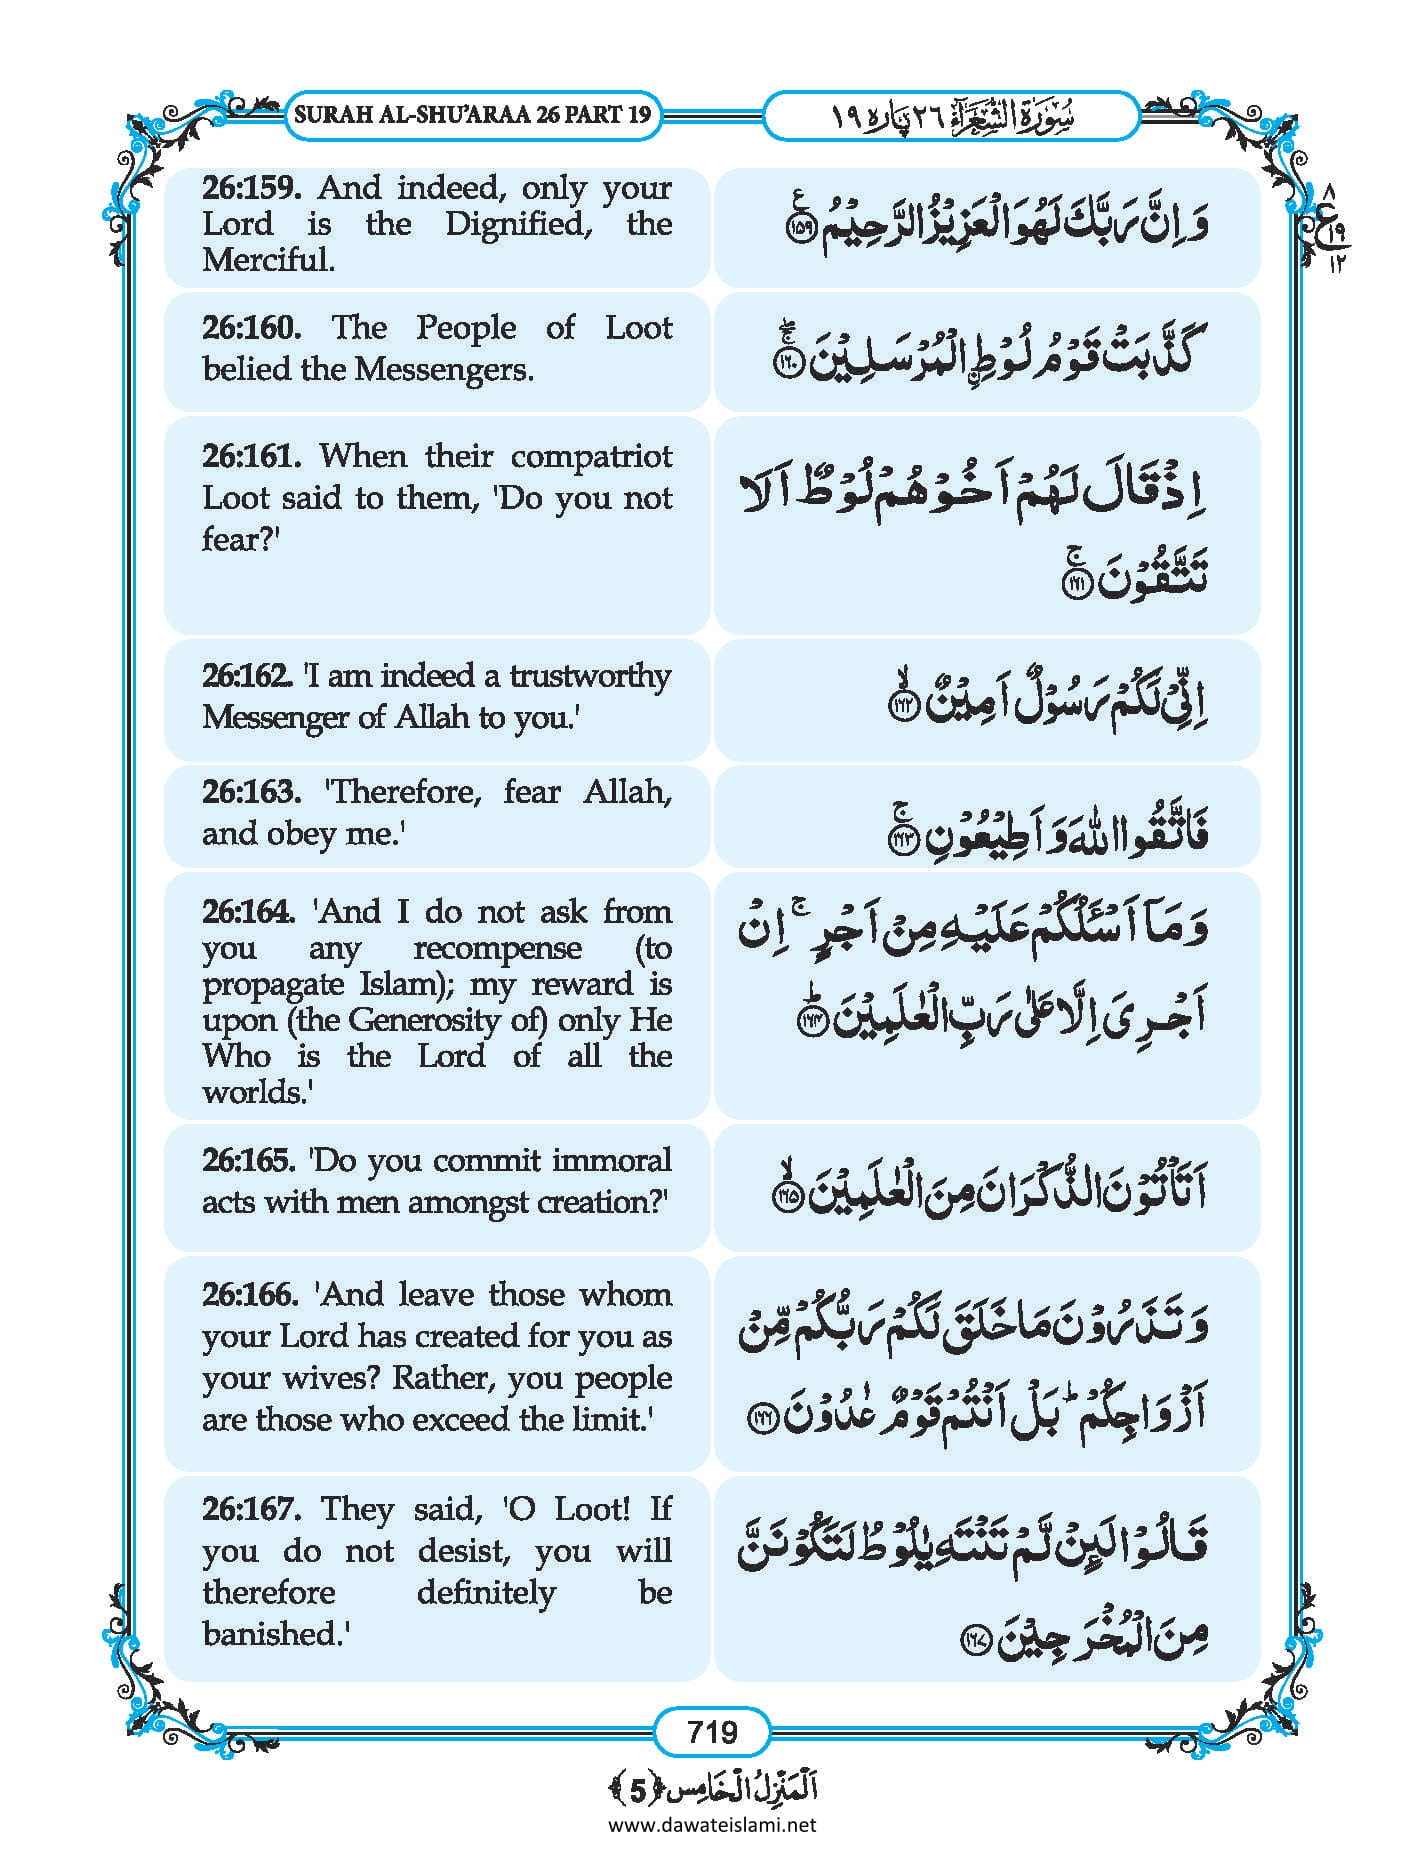 SURAH AL-SHU’ARAA 26 PART 19
سُوْرَةُ الشُّعَرَآءِ ٢٦ پارہ ١٩
٨
ع
١٩
١٢
26:159. And indeed, only your
Lord is the Dignified, the
Merciful.
وَ اِنَّ رَبَّكَ لَهُوَ الْعَزِيْزُ الرَّحِيْمُ ﴿١٥٩﴾ ع
26:160. The People of Loot
belied the Messengers.
كَذَّبَتْ قَوْمُ لُوْطِ ۨالْمُرْسَلِيْنَ ﴿١٦٠﴾ۚۖ
26:161. When their compatriot
Loot said to them, 'Do you not
fear?'
اِذْ قَالَ لَهُمْ اَخُوْهُمْ لُوْطٌ اَلَا
تَتَّقُوْنَ ﴿١٦١﴾ۚ
26:162. 'I am indeed a trustworthy
Messenger of Allah to you.'
اِنِّيْ لَكُمْ رَسُوْلٌ اَمِيْنٌ ﴿١٦٢﴾ۙ
26:163. 'Therefore, fear Allah,
and obey me.'
فَاتَّقُوا اللّٰهَ وَ اَطِيْعُوْنِ ﴿١٦٣﴾ۚ
26:164. 'And I do not ask from
you any recompense (to
propagate Islam); my reward is
upon (the Generosity of) only He
Who is the Lord of all the
worlds.'
وَ مَاۤ اَسْـَٔلُكُمْ عَلَيْهِ مِنْ اَجْرٍ ۚ اِنْ
اَجْرِيَ اِلَّا عَلٰى رَبِّ الْعٰلَمِيْنَ ﴿١٦٤﴾ؕ
26:165. 'Do you commit immoral
acts with men amongst creation?'
اَتَاْتُوْنَ الذُّكْرَانَ مِنَ الْعٰلَمِيْنَ ﴿١٦٥﴾ۙ
26:166. 'And leave those whom
your Lord has created for you as
your wives? Rather, you people
are those who exceed the limit.'
وَ تَذَرُوْنَ مَا خَلَقَ لَكُمْ رَبُّكُمْ مِّنْ
اَزْوَاجِكُمْ ؕ بَلْ اَنْتُمْ قَوْمٌ عٰدُوْنَ ﴿١٦٦﴾
26:167. They said, 'O Loot! If
you do not desist, you will
therefore definitely be
banished.'
قَالُوْا لَىِٕنْ لَّمْ تَنْتَهِ يٰلُوْطُ لَتَكُوْنَنَّ
مِنَ الْمُخْرَجِيْنَ ﴿١٦٧﴾
719
اَلْمَنْزِلُ الْخَامِس ﴿5﴾
www.dawateislami.net